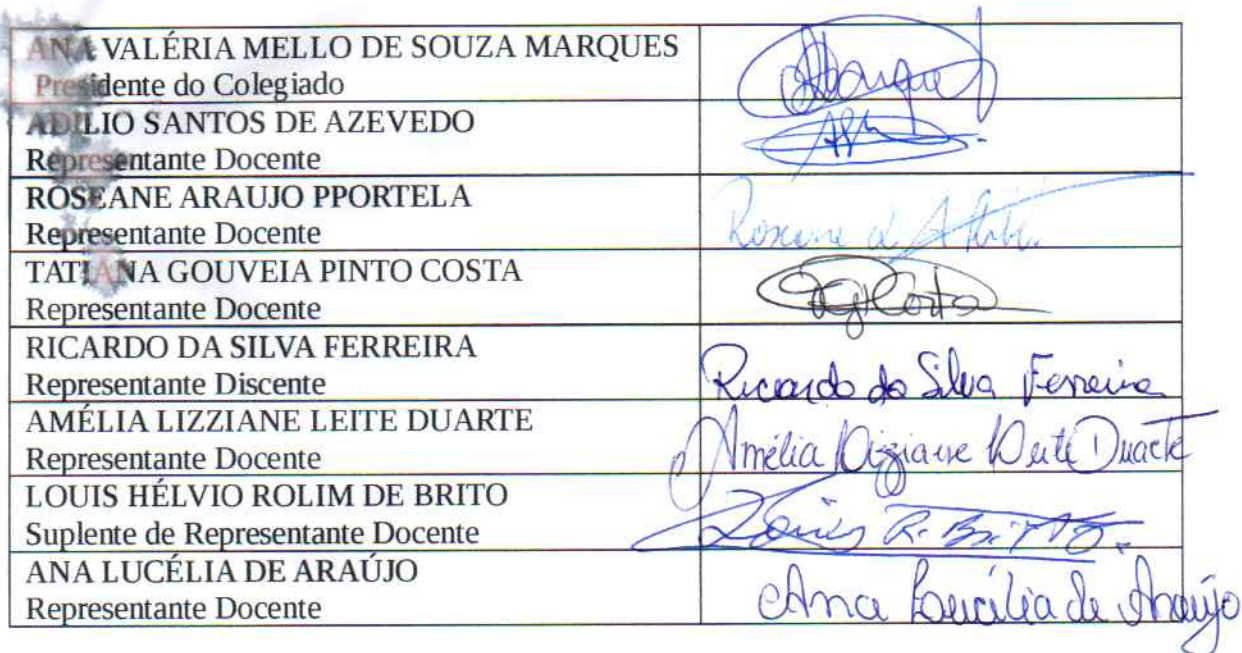 ANA VALÉRIA MELLO DE SOUZA MARQUES
Presidente do Colegiado
ADILIO SANTOS DE AZEVEDO
Representante Docente
ROSEANE ARAUJO PPORTELA
Representante Docente
Roseane
TATIANA GOUVEIA PINTO COSTA
Representante Docente
Costa
RICARDO DA SILVA FERREIRA
Representante Discente
Ricardo da Silva Ferreira
AMÉLIA LIZZIANE LEITE DUARTE
Representante Docente
Amélia Lizziane Leite Duarte
LOUIS HÉLVIO ROLIM DE BRITO
Suplente de Representante Docente
Louis R. Brito
ANA LUCÉLIA DE ARAÚJO
Representante Docente
Ana Lucélia de Araújo